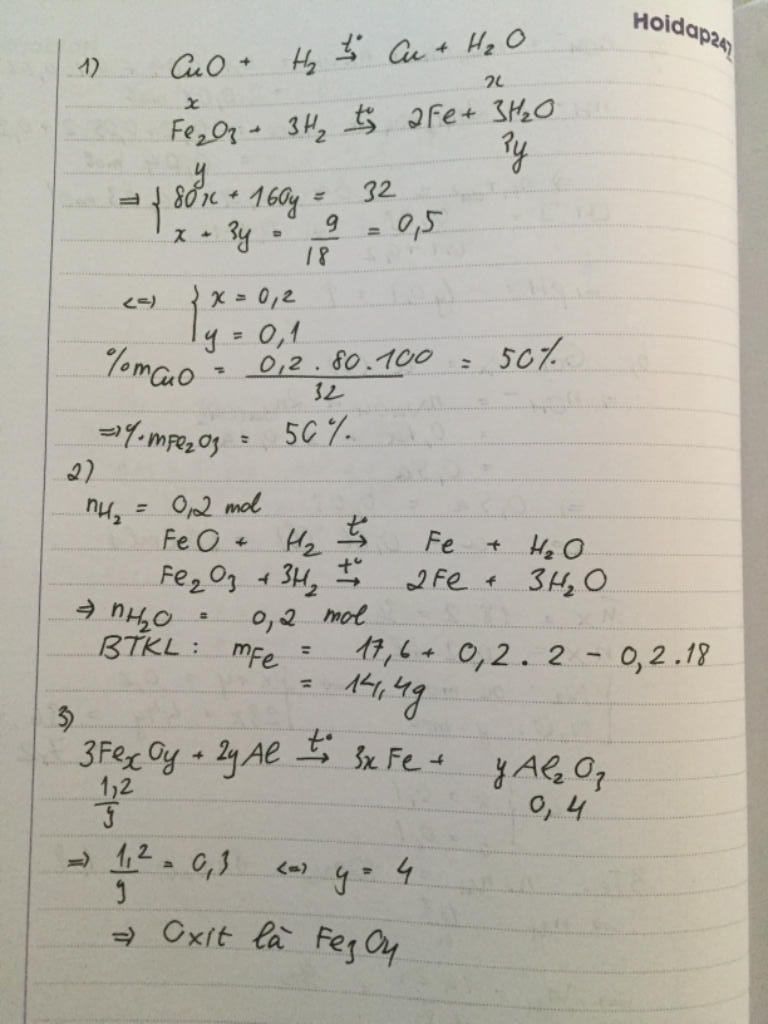 Hoidap247
1) CuO + H₂ →t° Cu + H₂O
x x
Fe₂O₃ + 3H₂ →t° 2Fe + 3H₂O
y 3y
=> { 80x + 160y = 32
x + 3y = 9/18 = 0,5
<=> { x = 0,2
y = 0,1
%mCuO = 0,2 . 80 . 100 / 32 = 50%
=> %mFe₂O₃ = 50%
2)
nH₂ = 0,2 mol
FeO + H₂ →t° Fe + H₂O
Fe₂O₃ + 3H₂ →t° 2Fe + 3H₂O
=> nH₂O = 0,2 mol
BTKL : mFe = 17,6 + 0,2 . 2 - 0,2 . 18
= 14,4g
3)
3FexOy + 2yAl →t° 3xFe + yAl₂O₃
1,2/y 0,4
=> 1,2/y = 0,3 <=> y = 4
=> Oxit là Fe₃O₄